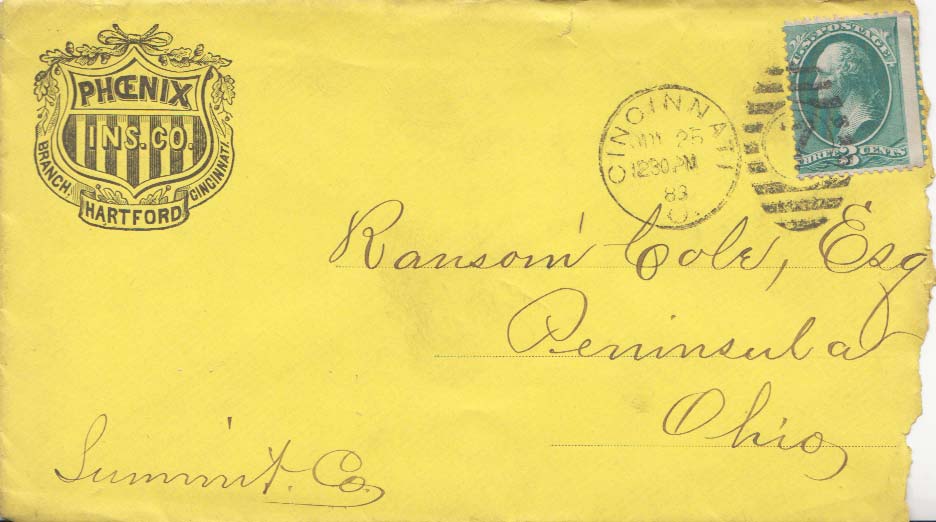 PHŒNIX
INS. CO.
BRANCH.
HARTFORD
CINCINNATI.
CINCINNATI
25
1230 PM
83
O.
U.S. POSTAGE
THREE 3 CENTS
Ransom Cole, Esq
Peninsula
Ohio
Summit. Co.